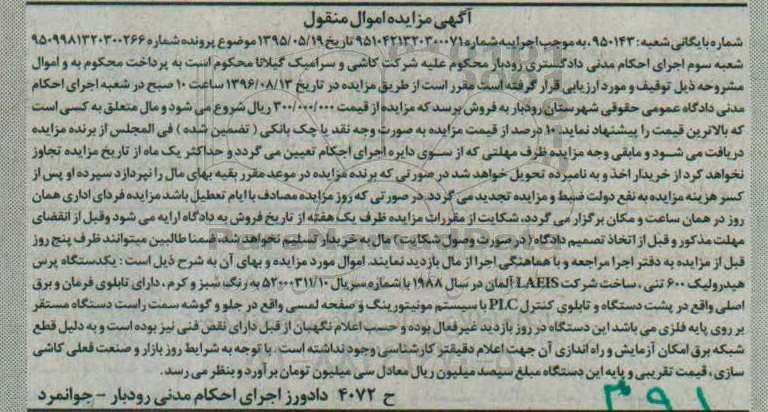 آگهی مزایده اموال منقول
شماره بایگانی شعبه : ۹۵۰۱۴۳ . به موجب اجراییه شماره ۹۵۱۰۴۲۱۳۲۰۳۰۰۰۷۱ تاریخ ۱۳۹۵/۰۵/۱۹ موضوع پرونده شماره ۹۵۰۹۹۸۱۳۲۰۳۰۰۲۶۶
شعبه سوم اجرای احکام مدنی دادگستری رودبار محکوم علیه شرکت کاشی و سرامیک گیلانا محکوم است به پرداخت محکوم به و اموال
مشروحه ذیل توقیف و مورد ارزیابی قرار گرفته است مقرر است از طریق مزایده در تاریخ ۱۳۹۶/۰۸/۱۳ ساعت ۱۰ صبح در شعبه اجرای احکام
مدنی دادگاه عمومی حقوقی شهرستان رودبار به فروش برسد که مزایده از قیمت ۳۰۰/۰۰۰/۰۰۰ ریال شروع می شود و مال متعلق به کسی است
که بالاترین قیمت را پیشنهاد نماید. ۱۰ درصد از قیمت مزایده به صورت وجه نقد یا چک بانکی ( تضمین شده ) فی المجلس از برنده مزایده
دریافت می شود و مابقی وجه مزایده ظرف مهلتی که از سوی دایره اجرای احکام تعیین می گردد و حداکثر یک ماه از تاریخ مزایده تجاوز
نخواهد کرد از خریدار اخذ و به نامبرده تحویل خواهد شد در صورتی که برنده مزایده در موعد مقرر بقیه بهای مال را نپردازد سپرده او پس از
کسر هزینه مزایده به نفع دولت ضبط و مزایده تجدید می گردد. در صورتی که روز مزایده مصادف با ایام تعطیل باشد مزایده فردای اداری همان
روز در همان ساعت و مکان برگزار می گردد، شکایت از مقررات مزایده ظرف یک هفته از تاریخ فروش به دادگاه ارایه می شود وقبل از انقضای
مهلت مذکور و قبل از اتخاذ تصمیم دادگاه ( در صورت وصول شکایت ) مال به خریدار تسلیم نخواهد شد. ضمنا طالبین میتوانند ظرف پنج روز
قبل از مزایده به دفتر اجرا مراجعه و با هماهنگی اجرا از مال بازدید نمایند. اموال مورد مزایده و بهای آن به شرح ذیل است : یکدستگاه پرس
هیدرولیک ۶۰۰ تنی ، ساخت شرکت LAEIS آلمان در سال ۱۹۸۸ با شماره سریال ۵۲۰۰۰۳۱۱/۱۰ به رنگ سبز و کرم ، دارای تابلوی فرمان و برق
اصلی واقع در پشت دستگاه و تابلوی کنترل PLC با سیستم مونیتورینگ و صفحه لمسی واقع در جلو و گوشه سمت راست دستگاه مستقر
بر روی پایه فلزی می باشد این دستگاه در روز بازدید غیر فعال بوده و حسب اعلام نگهبان از قبل دارای نقص فنی نیز بوده است و به دلیل قطع
شبکه برق امکان آزمایش و راه اندازی آن جهت اعلام دقیقتر کارشناسی وجود نداشته است . با توجه به شرایط روز بازار و صنعت فعلی کاشی
سازی ، قیمت تقریبی و پایه این دستگاه مبلغ سیصد میلیون ریال معادل سی میلیون تومان برآورد و بنظر می رسد.
ح ۴۰۷۲ دادورز اجرای احکام مدنی رودبار - جوانمرد
۳۹۱